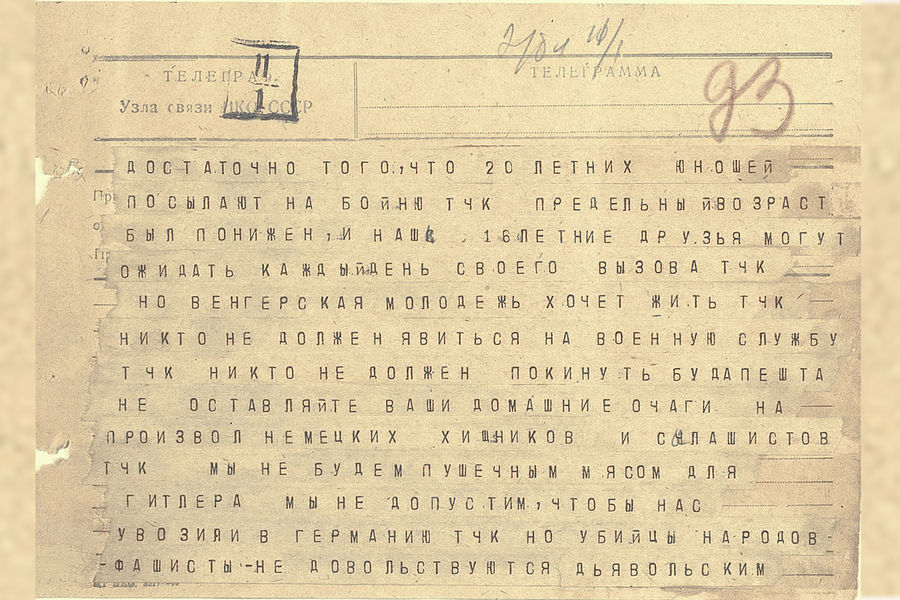 ТЕЛЕГРАФ
Узла связи НКО СССР
11
1
ТЕЛЕГРАММА
93
ДОСТАТОЧНО ТОГО,ЧТО 20 ЛЕТНИХ ЮНОШЕЙ
ПОСЫЛАЮТ НА БОЙНЮ ТЧК ПРЕДЕЛЬНЫЙВОЗРАСТ
БЫЛ ПОНИЖЕН,И НАШИ 16ЛЕТНИЕ ДРУЗЬЯ МОГУТ
ОЖИДАТЬ КАЖДЫЙДЕНЬ СВОЕГО ВЫЗОВА ТЧК
НО ВЕНГЕРСКАЯ МОЛОДЕЖЬ ХОЧЕТ ЖИТЬ ТЧК
НИКТО НЕ ДОЛЖЕН ЯВИТЬСЯ НА ВОЕННУЮ СЛУЖБУ
ТЧК НИКТО НЕ ДОЛЖЕН ПОКИНУТЬ БУДАПЕШТА
НЕ ОСТАВЛЯЙТЕ ВАШИ ДОМАШНИЕ ОЧАГИ НА
ПРОИЗВОЛ НЕМЕЦКИХ ХИЩНИКОВ И САЛАШИСТОВ
ТЧК МЫ НЕ БУДЕМ ПУШЕЧНЫМ МЯСОМ ДЛЯ
ГИТЛЕРА МЫ НЕ ДОПУСТИМ,ЧТОБЫ НАС
УВОЗИЛИ В ГЕРМАНИЮ ТЧК НО УБИЙЦЫ НАРОДОВ-
-ФАШИСТЫ-НЕ ДОВОЛЬСТВУЮТСЯ ДЬЯВОЛЬСКИМ